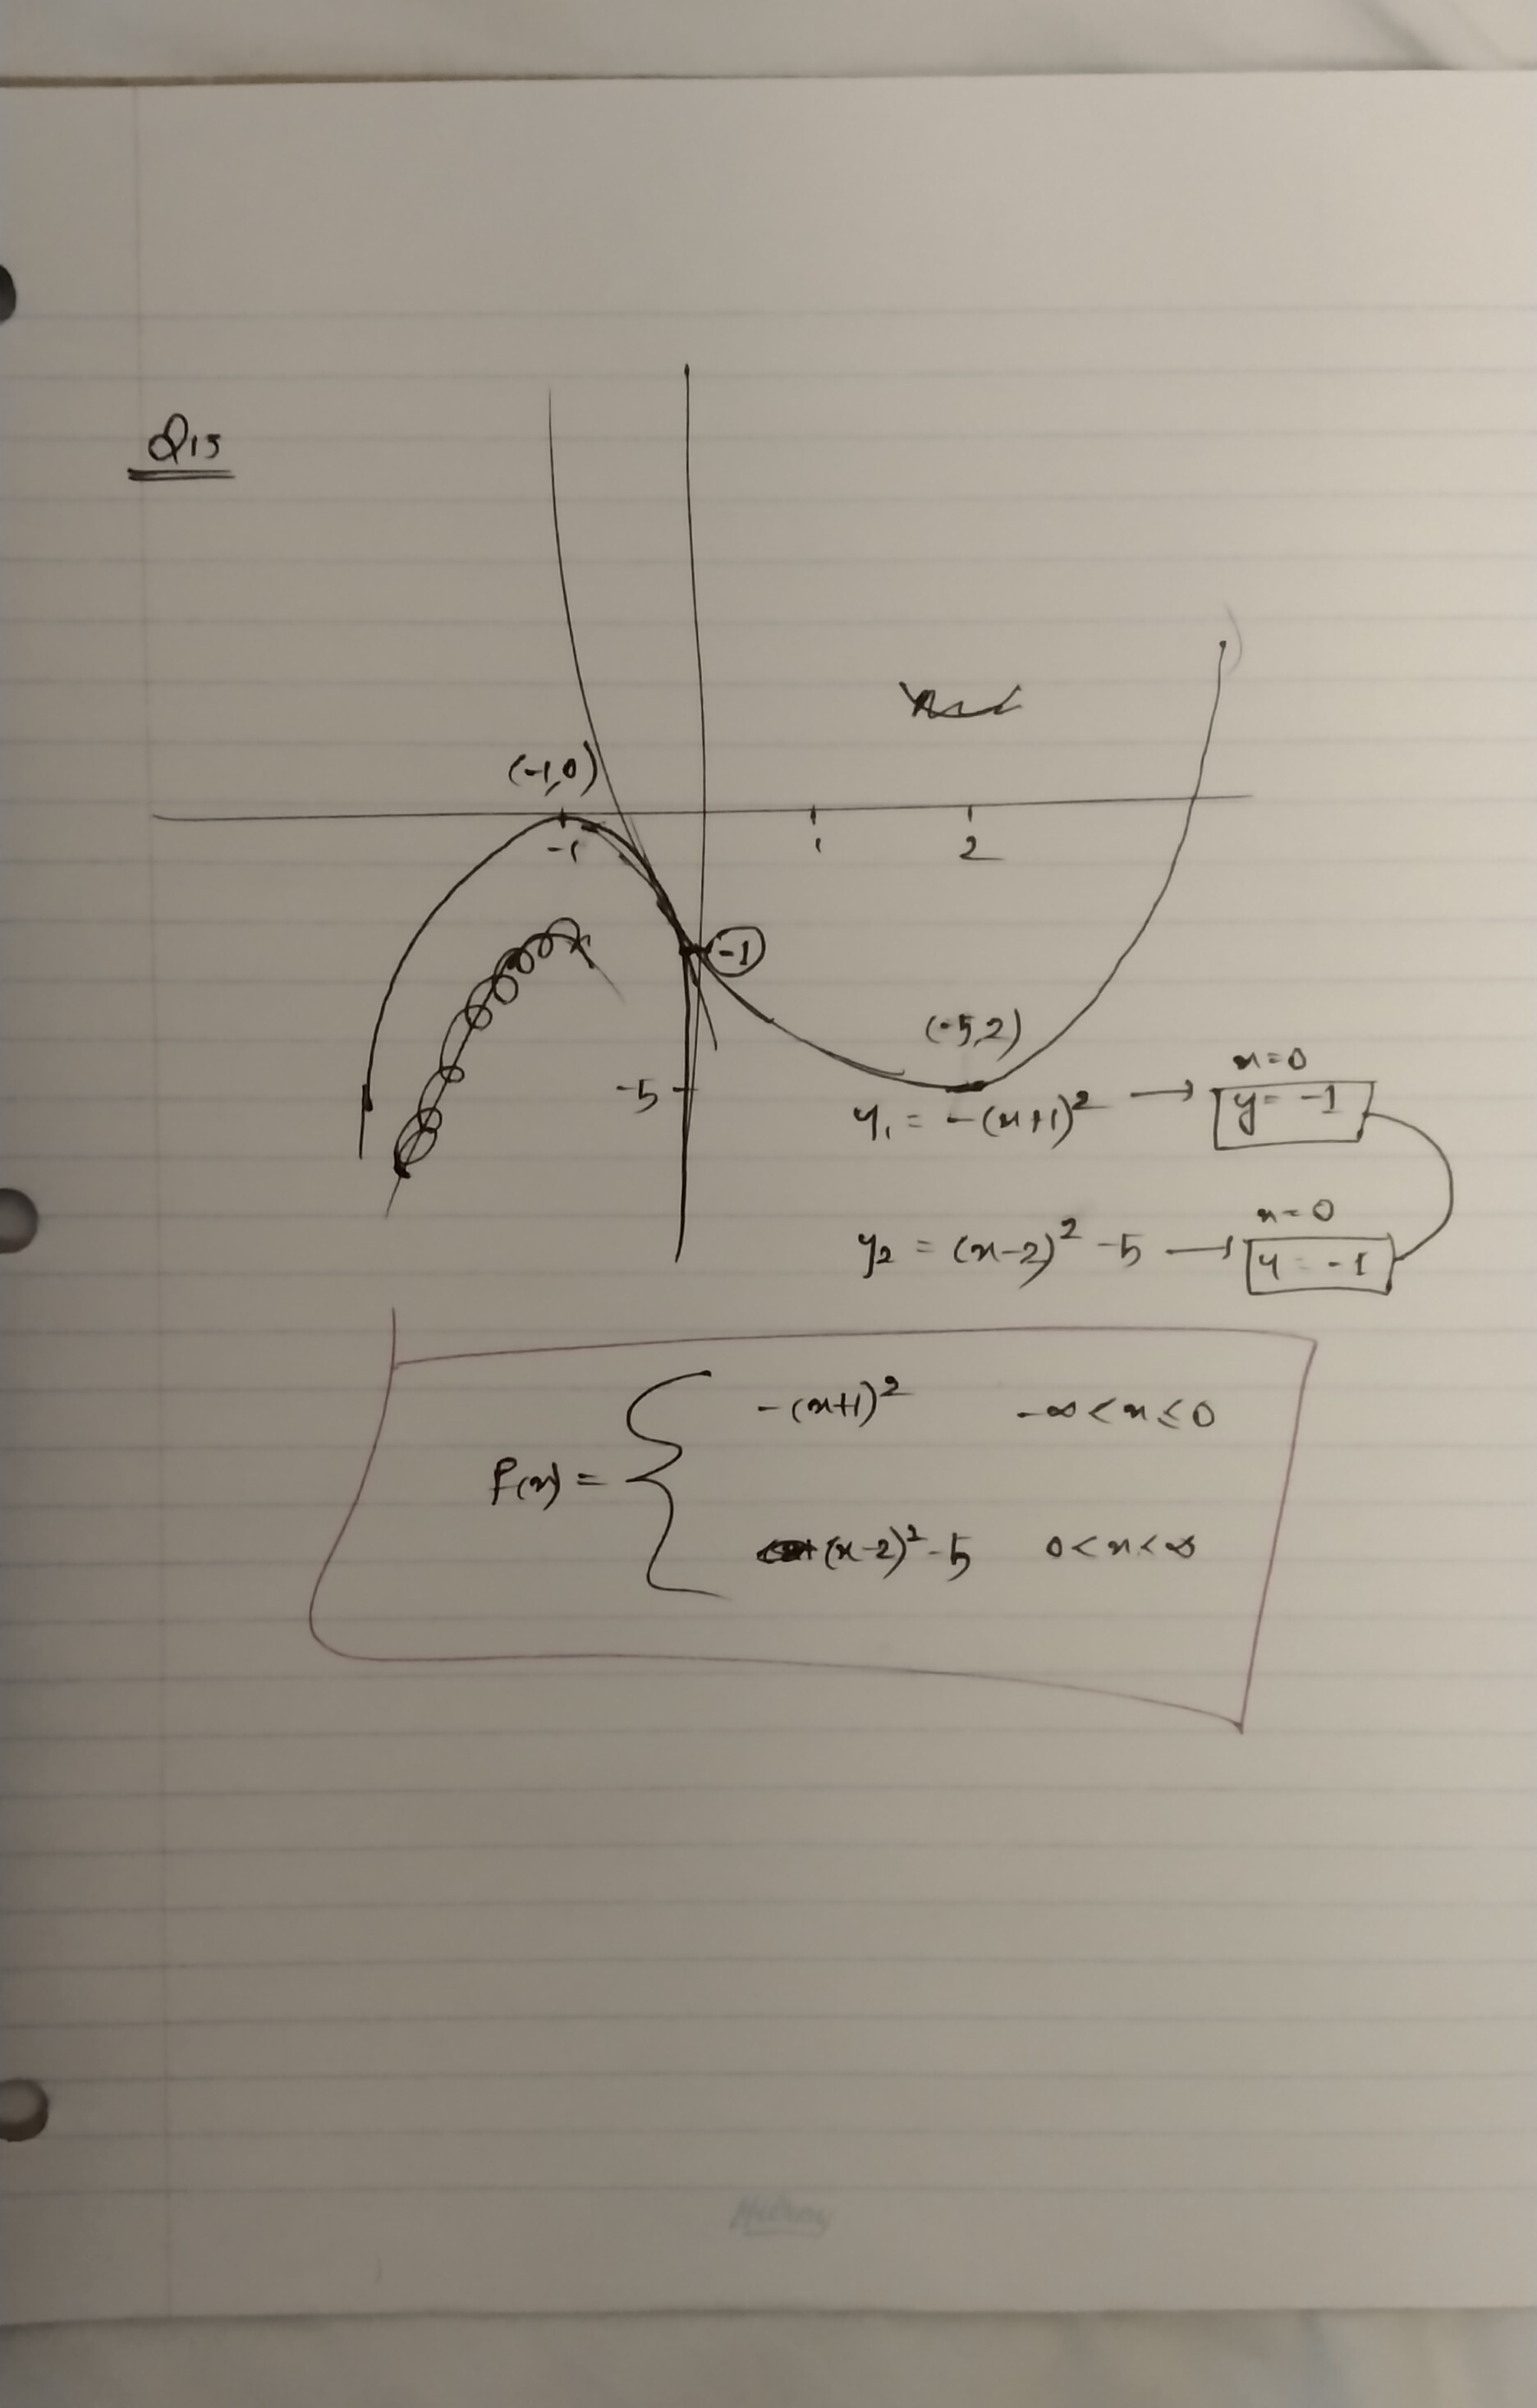 Q15
(-1,0)
-1
1
2
-1
(-5,2)
-5
y₁ = -(x+1)² → x=0 y = -1
y₂ = (x-2)² - 5 → x=0 y = -1
f(x) = { -(x+1)² -∞ < x ≤ 0
(x-2)² - 5 0 < x < ∞